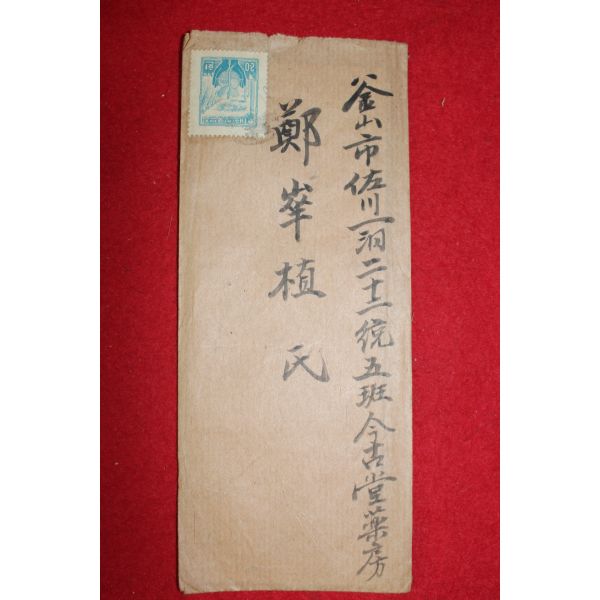 釜山市佐川一洞二十二統五班今古堂薬房
鄭峯植氏
20